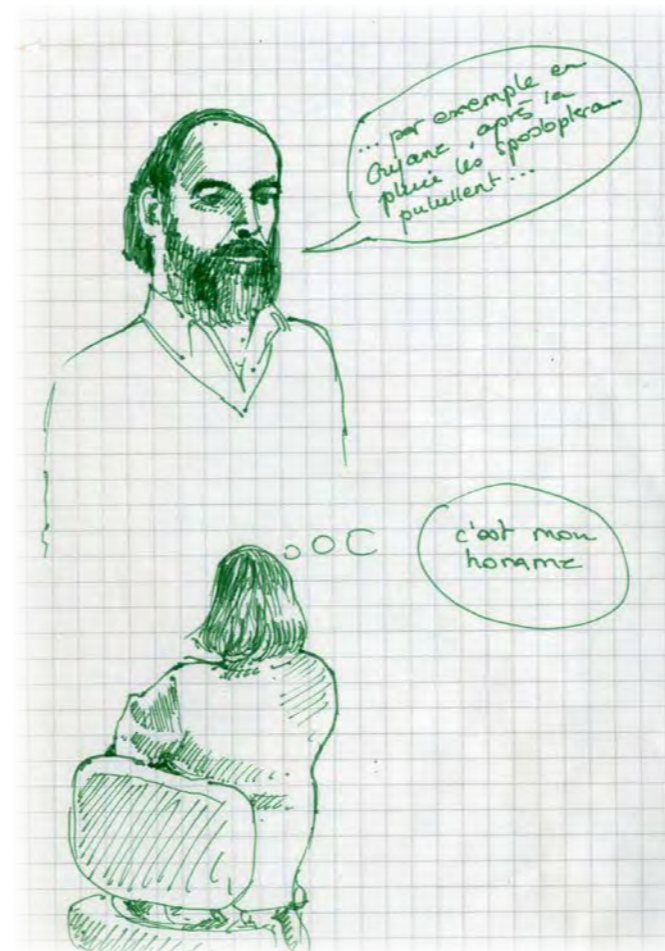 ... par exemple en
Guyane, après la
pluie les spodoptera
pullulent...
c'est mon
homme